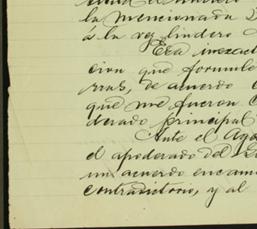 la mencionada
á la vez lindero
Esa inexac
cion que formulé
rras, de acuerdo
que me fueron
derado principal
Ante el Ag
el apoderado del
un acuerdo encam
contradictorio, y al